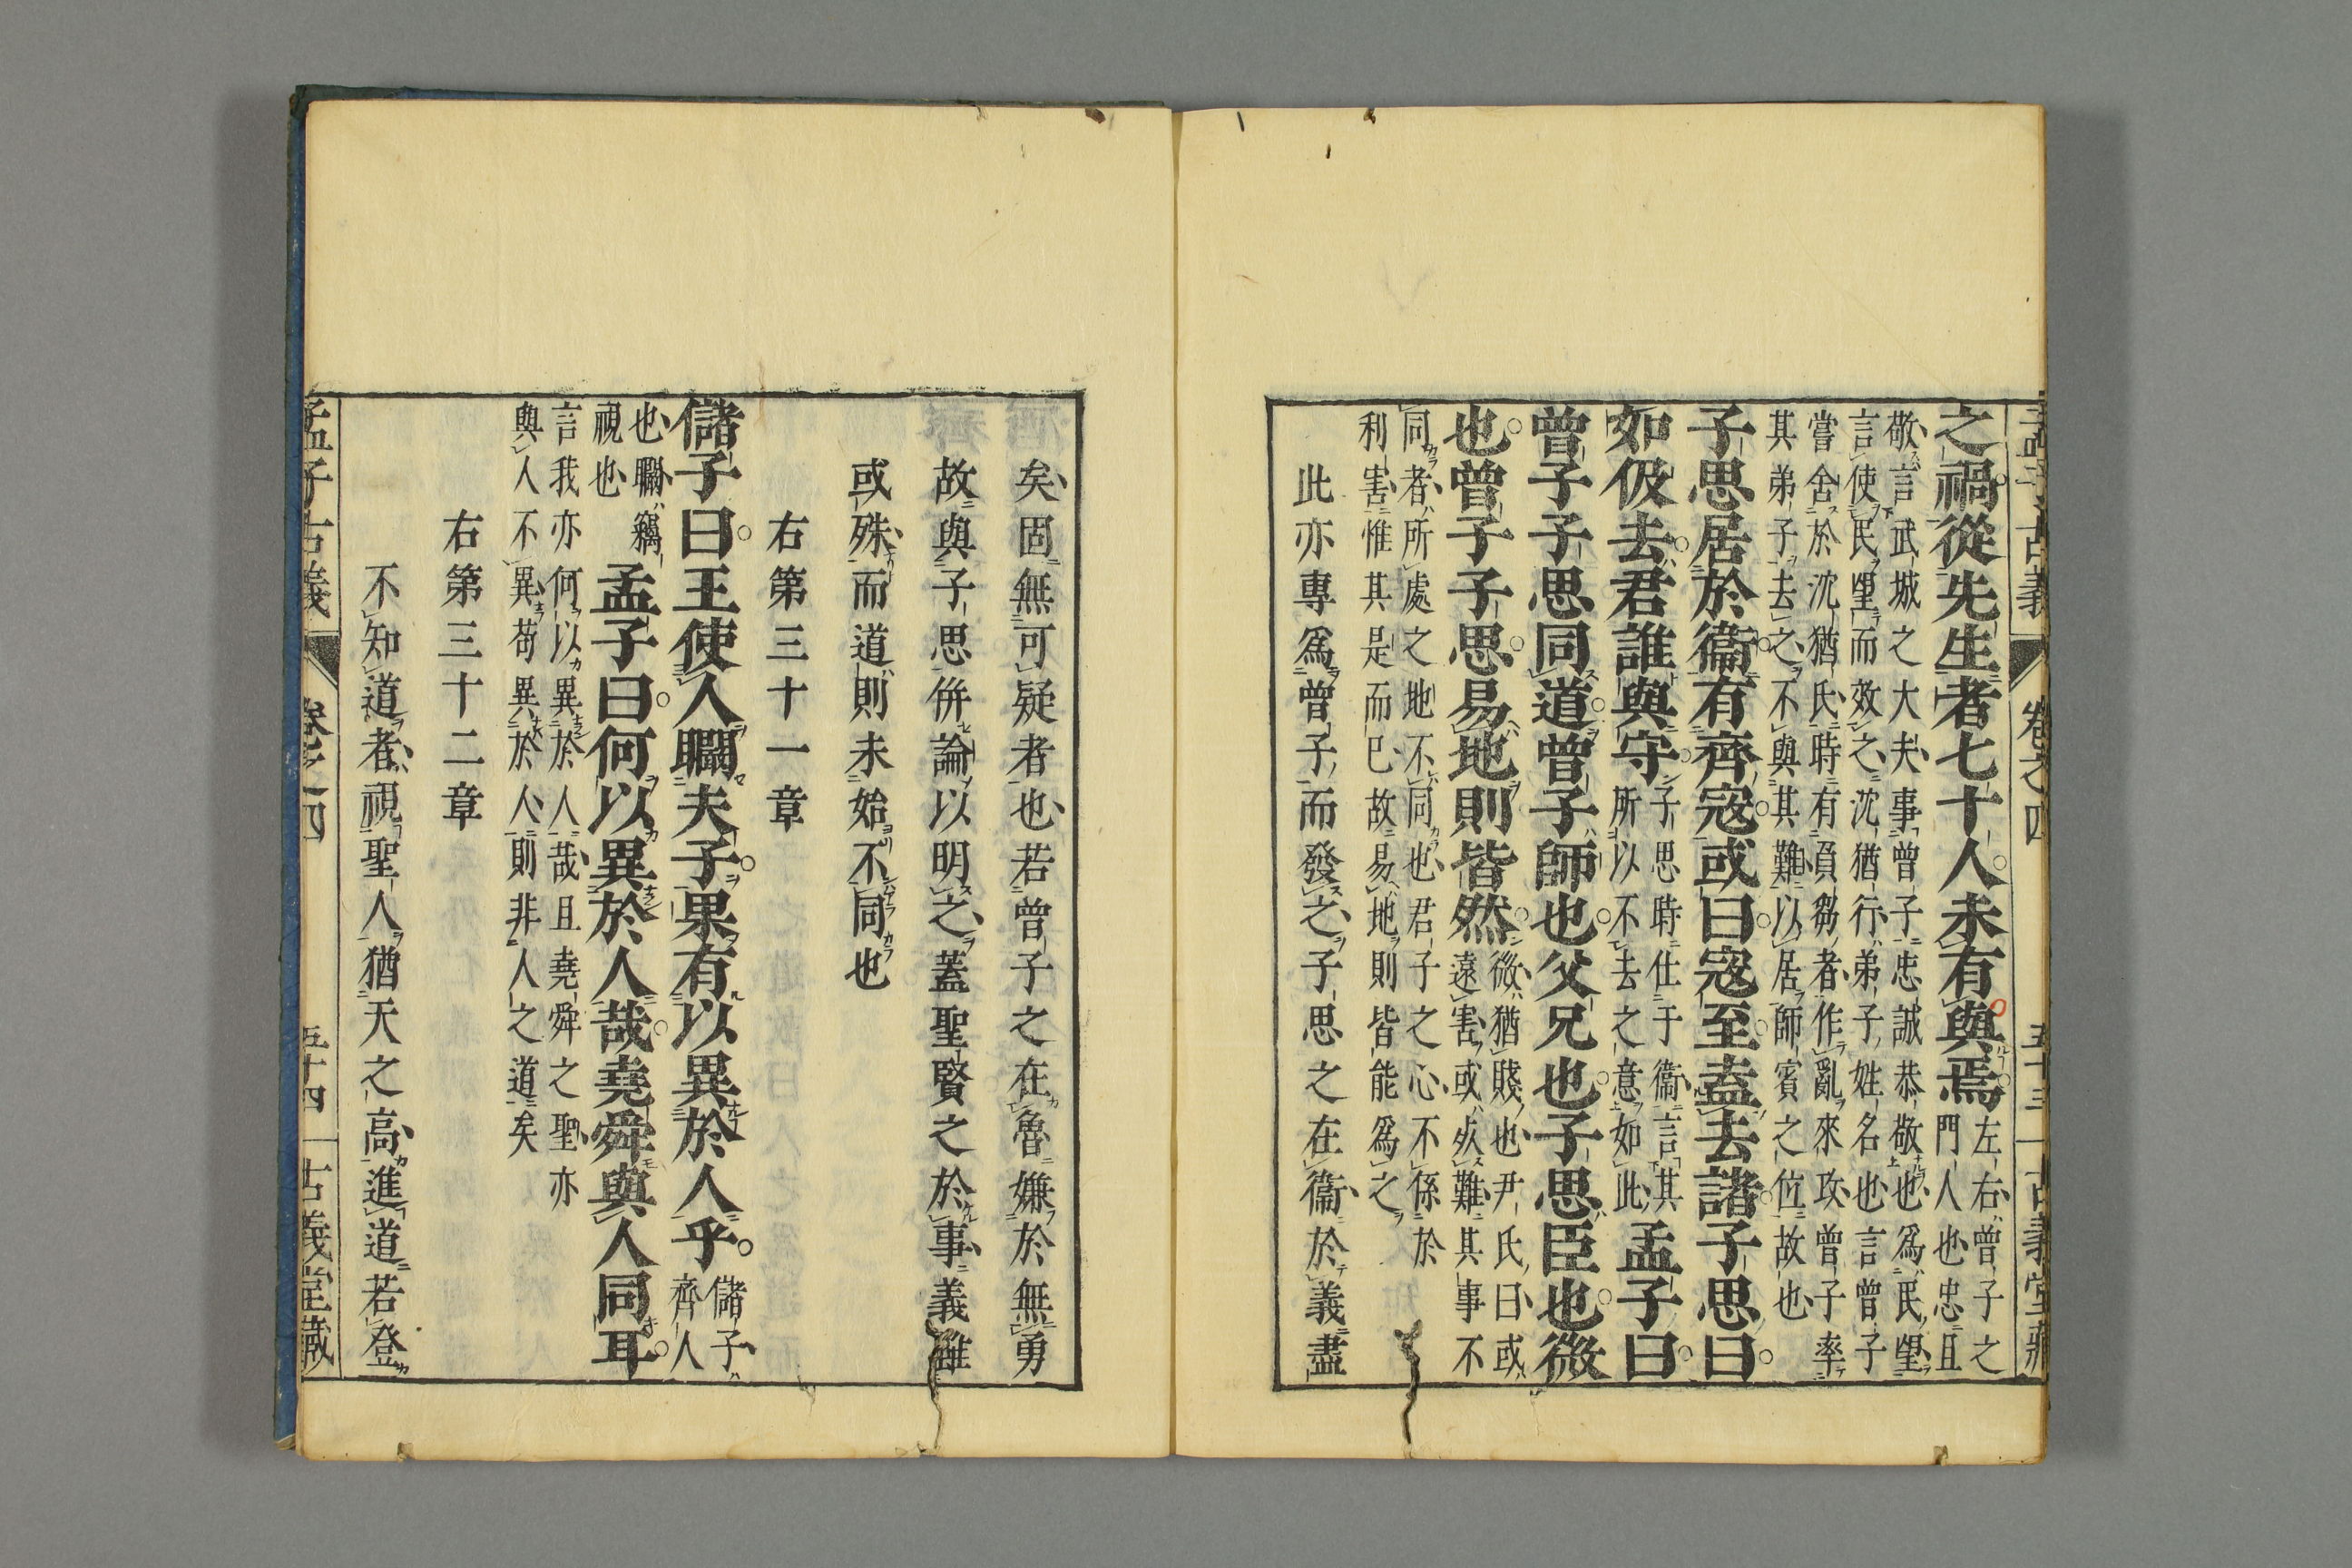 孟子古義 卷之四 五十三 古義堂藏
之禍從先生者七十人未有與焉左右曾子之
門人也忠且
敬言武城之大夫事曾子忠誠恭敬也爲民望
言使民望而效之沈猶行弟子姓名也言曾子
嘗舍於沈猶氏時有負芻者作亂來攻曾子率
其弟子去之不與其難以居師賓之位故也
子思居於衞有齊寇或曰寇至盍去諸子思曰
如伋去君誰與守子思時仕于衞言其
所以不去之意如此孟子曰
曾子子思同道曾子師也父兄也子思臣也微
也曾子子思易地則皆然微猶賤也尹氏曰或
遠害或死難其事不
同者所處之地不同也君子之心不係於
利害惟其是而已故易地則皆能爲之
此亦專爲曾子而發之子思之在衞於義盡
矣固無可疑者也若曾子之在魯嫌於無勇
故與子思併論以明之蓋聖賢之於事義雖
或殊而道則未始不同也
右第三十一章
儲子曰王使人瞷夫子果有以異於人乎儲子
齊人
也瞷竊
視也孟子曰何以異於人哉堯舜與人同耳
言我亦何以異於人哉且堯舜之聖亦
與人不異苟異於人則非人之道矣
右第三十二章
不知道者視聖人猶天之高進道若登
孟子古義 卷之四 五十四 古義堂藏